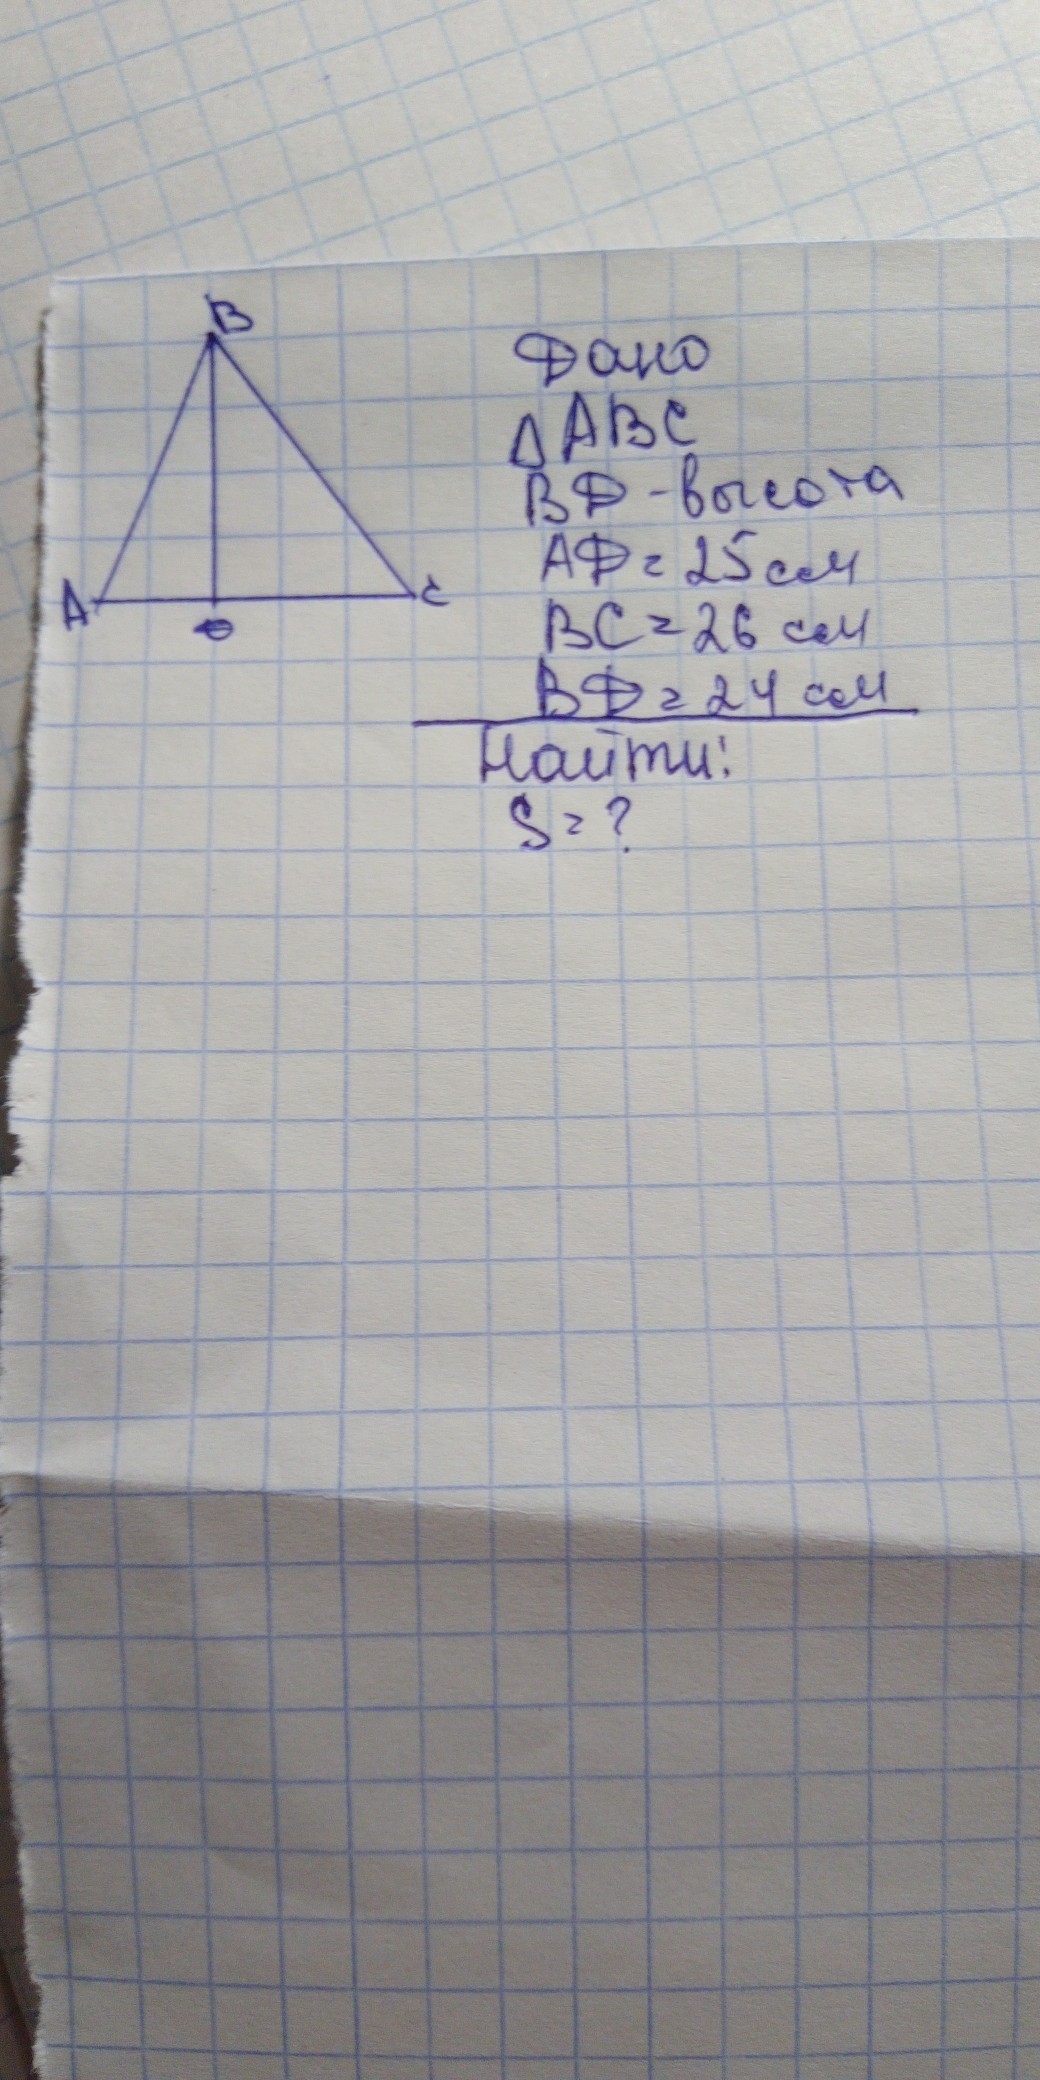 B
A
C
D
Дано
Δ ABC
BD - высота
AD = 25 см
BC = 26 см
BD = 24 см
Найти:
S = ?